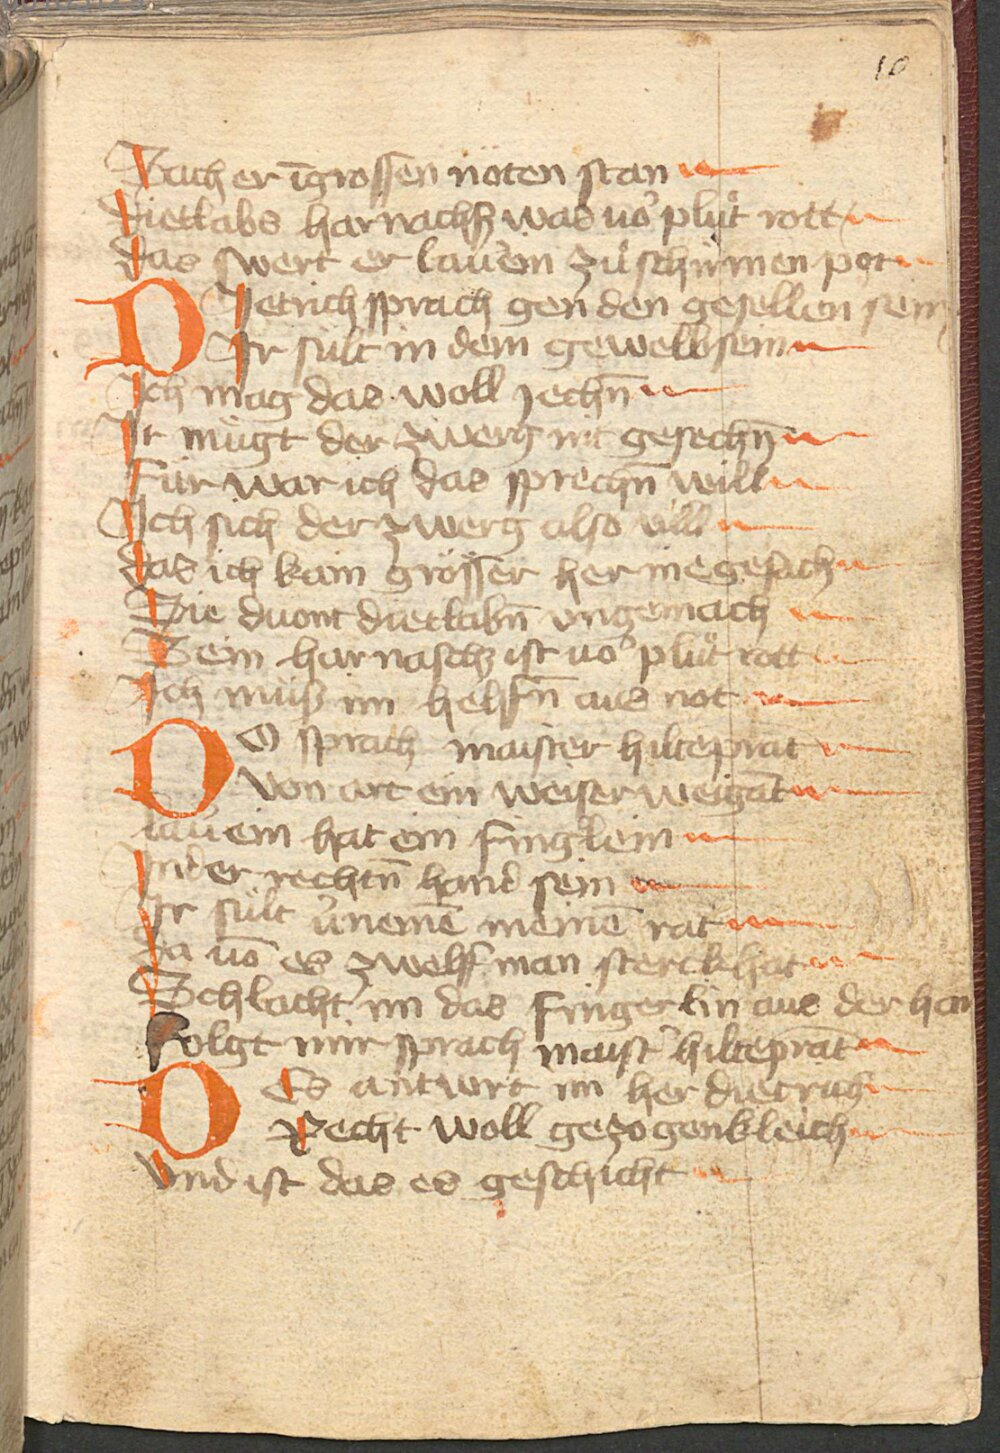 10
Sach er ī grossen nöten stan
Dietlabs harnachß was uō plůt rott
Das swert er laurein zů schirmen pot
DIetrich sprach gen den gesellen sein
Ir sült in dem gewelb sein
Ich mag das woll jechn̄
Ir mügt der zwerg nit gesechn̄
Für war ich das sprechn̄ will
Ich sich der zwerg also vill
Das ich kain grösser her nie gesach
Die duont dietlabn̄ vngemach
Sein harnasch ist uō plůt rott
Ich müß im helffn̄ aus not
DO sprach maister hilteprāt
Von art ein weiser weigāt
laurein hat ein fingerlein
In der rechtn̄ hand sein
Ir sült v̉nemē meinē rat
Da uō es zwelff man sterck hat
Schlacht im das fingerlin aus der han
Folgt mir sprach maistˀ hilteprāt
DEs antwrt im her dietrich
Recht woll gezogenkleich
Vnd ist das es geschicht